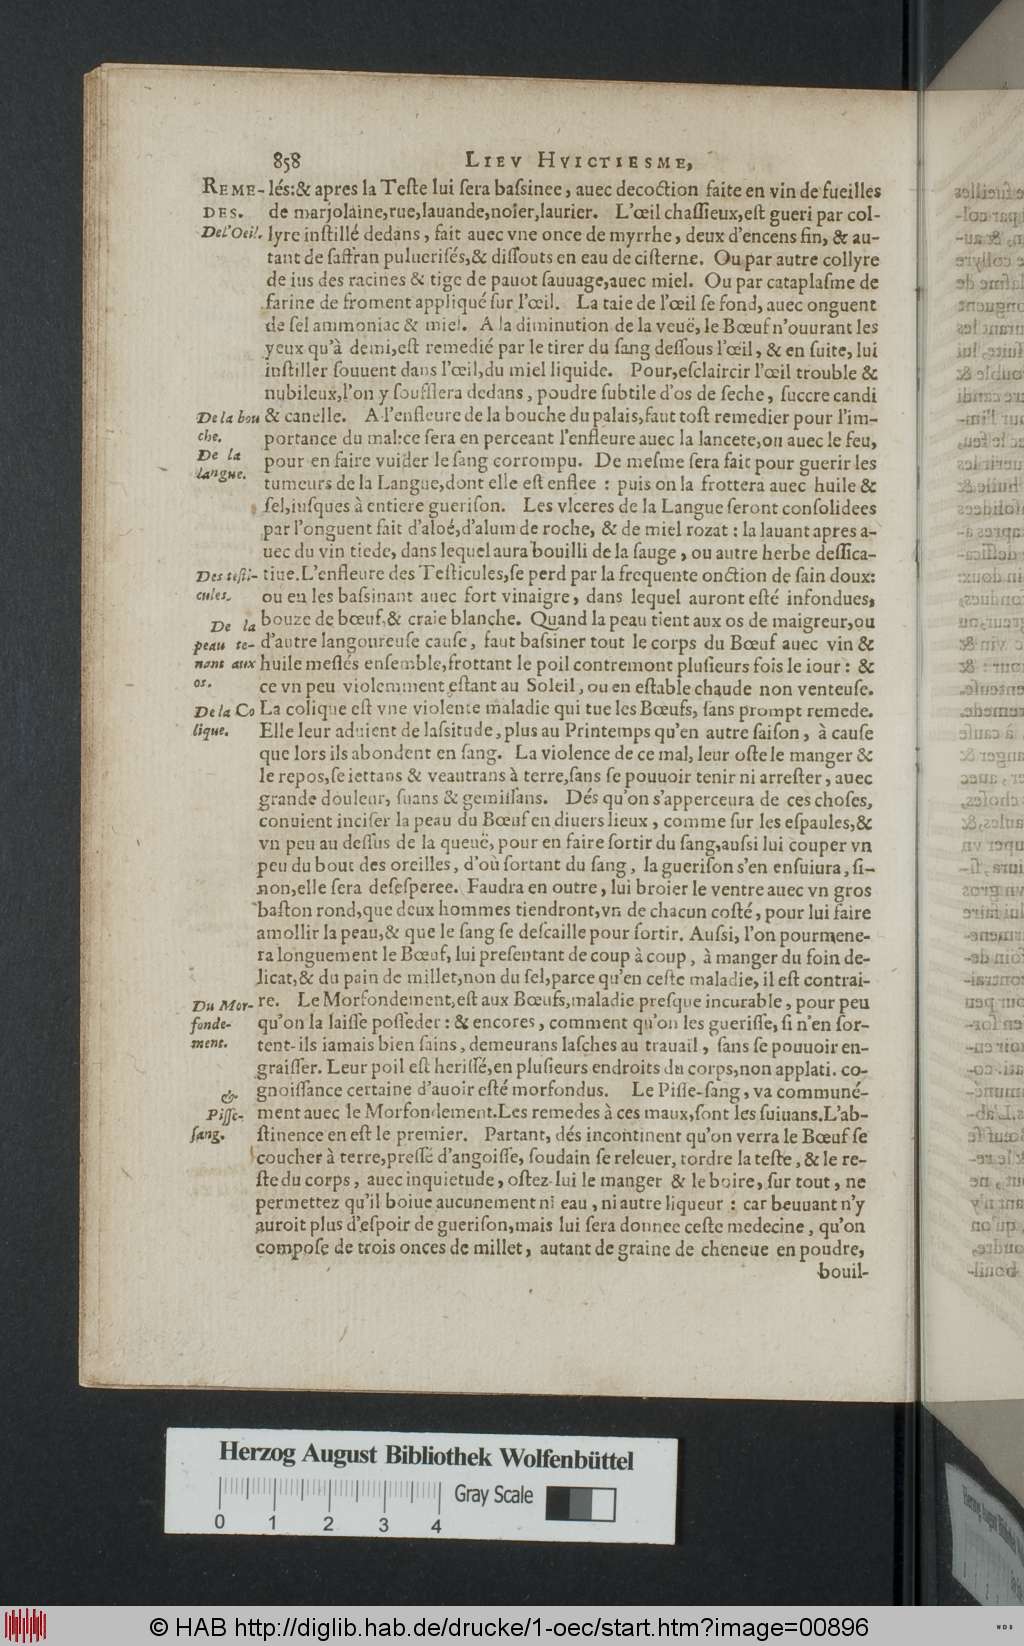 858 LIEV HVICTIESME,
REME- lés:& apres la Teſte lui ſera baſsinee, auec decoction faite en vin de fueilles
DES. de marjolaine,rue,lauande,noier,laurier. L'œil chaſſieux,eſt gueri par col-
Del'Oeil. lyre inſtillé dedans, fait auec vne once de myrrhe, deux d'encens fin, & au-
tant de ſaffran puluerifés,& diſſouts en eau de ciſterne. Ou par autre collyre
de ius des racines & tige de pauot ſauuage,auec miel. Ou par cataplaſme de
farine de froment appliqué ſur l'œil. La taie de l'œil ſe fond, auec onguent
de ſel ammoniac & miel. A la diminution de la veuë, le Bœuf n'ouurant les
yeux qu'à demi,eſt remedié par le tirer du ſang deſſous l'œil, & en ſuite, lui
inſtiller ſouuent dans l'œil,du miel liquide. Pour,eſclaircir l'œil trouble &
nubileux,l'on y ſoufflera dedans, poudre ſubtile d'os de ſeche, ſuccre candi
De la bou & canelle. A l'enfleure de la bouche du palais,faut toſt remedier pour l'im-
che. portance du mal:ce ſera en perceant l'enfleure auec la lancete,ou auec le feu,
De la pour en faire vuider le ſang corrompu. De meſme ſera fait pour guerir les
langue. tumeurs de la Langue,dont elle eſt enflee : puis on la frottera auec huile &
ſel,iuſques à entiere gueriſon. Les vlceres de la Langue ſeront conſolidees
par l'onguent fait d'aloé,d'alum de roche, & de miel rozat : la lauant apres a-
uec du vin tiede, dans lequel aura bouilli de la ſauge, ou autre herbe deſſica-
Des teſti- tiue.L'enfleure des Teſticules,ſe perd par la frequente onction de ſain doux:
cules. ou en les baſsinant auec fort vinaigre, dans lequel auront eſté infondues,
De la bouze de bœuf,& craie blanche. Quand la peau tient aux os de maigreur,ou
peau te- d'autre langoureuſe cauſe, faut baſsiner tout le corps du Bœuf auec vin &
nant aux huile meſlés enſemble,frottant le poil contremont pluſieurs fois le iour : &
os. ce vn peu violemment eſtant au Soleil, ou en eſtable chaude non venteuſe.
De la Co La colique eſt vne violente maladie qui tue les Bœufs, ſans prompt remede.
lique. Elle leur aduient de laſsitude, plus au Printemps qu'en autre ſaiſon, à cauſe
que lors ils abondent en ſang. La violence de ce mal, leur oſte le manger &
le repos,ſe iettans & veautrans à terre,ſans ſe pouuoir tenir ni arreſter, auec
grande douleur, ſuans & gemiſſans. Dés qu'on s'apperceura de ces choſes,
conuient inciſer la peau du Bœuf en diuers lieux, comme ſur les eſpaules,&
vn peu au deſſus de la queuë, pour en faire ſortir du ſang,auſsi lui couper vn
peu du bout des oreilles, d'où ſortant du ſang, la gueriſon s'en enſuiura, ſi-
non,elle ſera deſeſperee. Faudra en outre, lui broier le ventre auec vn gros
baſton rond,que deux hommes tiendront,vn de chacun coſté, pour lui faire
amollir la peau,& que le ſang ſe deſcaille pour ſortir. Auſsi, l'on pourmene-
ra longuement le Bœuf, lui preſentant de coup à coup, à manger du foin de-
licat,& du pain de millet,non du ſel,parce qu'en ceſte maladie, il eſt contrai-
Du Mor- re. Le Morfondement,eſt aux Bœufs,maladie preſque incurable, pour peu
fonde- qu'on la laiſſe poſſeder : & encores, comment qu'on les gueriſſe, ſi n'en ſor-
ment. tent-ils iamais bien ſains, demeurans laſches au trauail, ſans ſe pouuoir en-
graiſſer. Leur poil eſt heriſſé,en pluſieurs endroits du corps,non applati. co-
& gnoiſſance certaine d'auoir eſté morfondus. Le Piſſe-ſang, va communé-
Piſſe- ment auec le Morfondement.Les remedes à ces maux,ſont les ſuiuans.L'ab-
ſang. ſtinence en eſt le premier. Partant, dés incontinent qu'on verra le Bœuf ſe
coucher à terre,preſſé d'angoiſſe, ſoudain ſe releuer, tordre la teſte, & le re-
ſte du corps, auec inquietude, oſtez-lui le manger & le boire, ſur tout, ne
permettez qu'il boiue aucunement ni eau, ni autre liqueur : car beuuant n'y
auroit plus d'eſpoir de gueriſon,mais lui ſera donnee ceſte medecine, qu'on
compoſe de trois onces de millet, autant de graine de cheneue en poudre,
bouil-
Herzog August Bibliothek Wolfenbüttel
Gray Scale
0 1 2 3 4
© HAB http://diglib.hab.de/drucke/1-oec/start.htm?image=00896